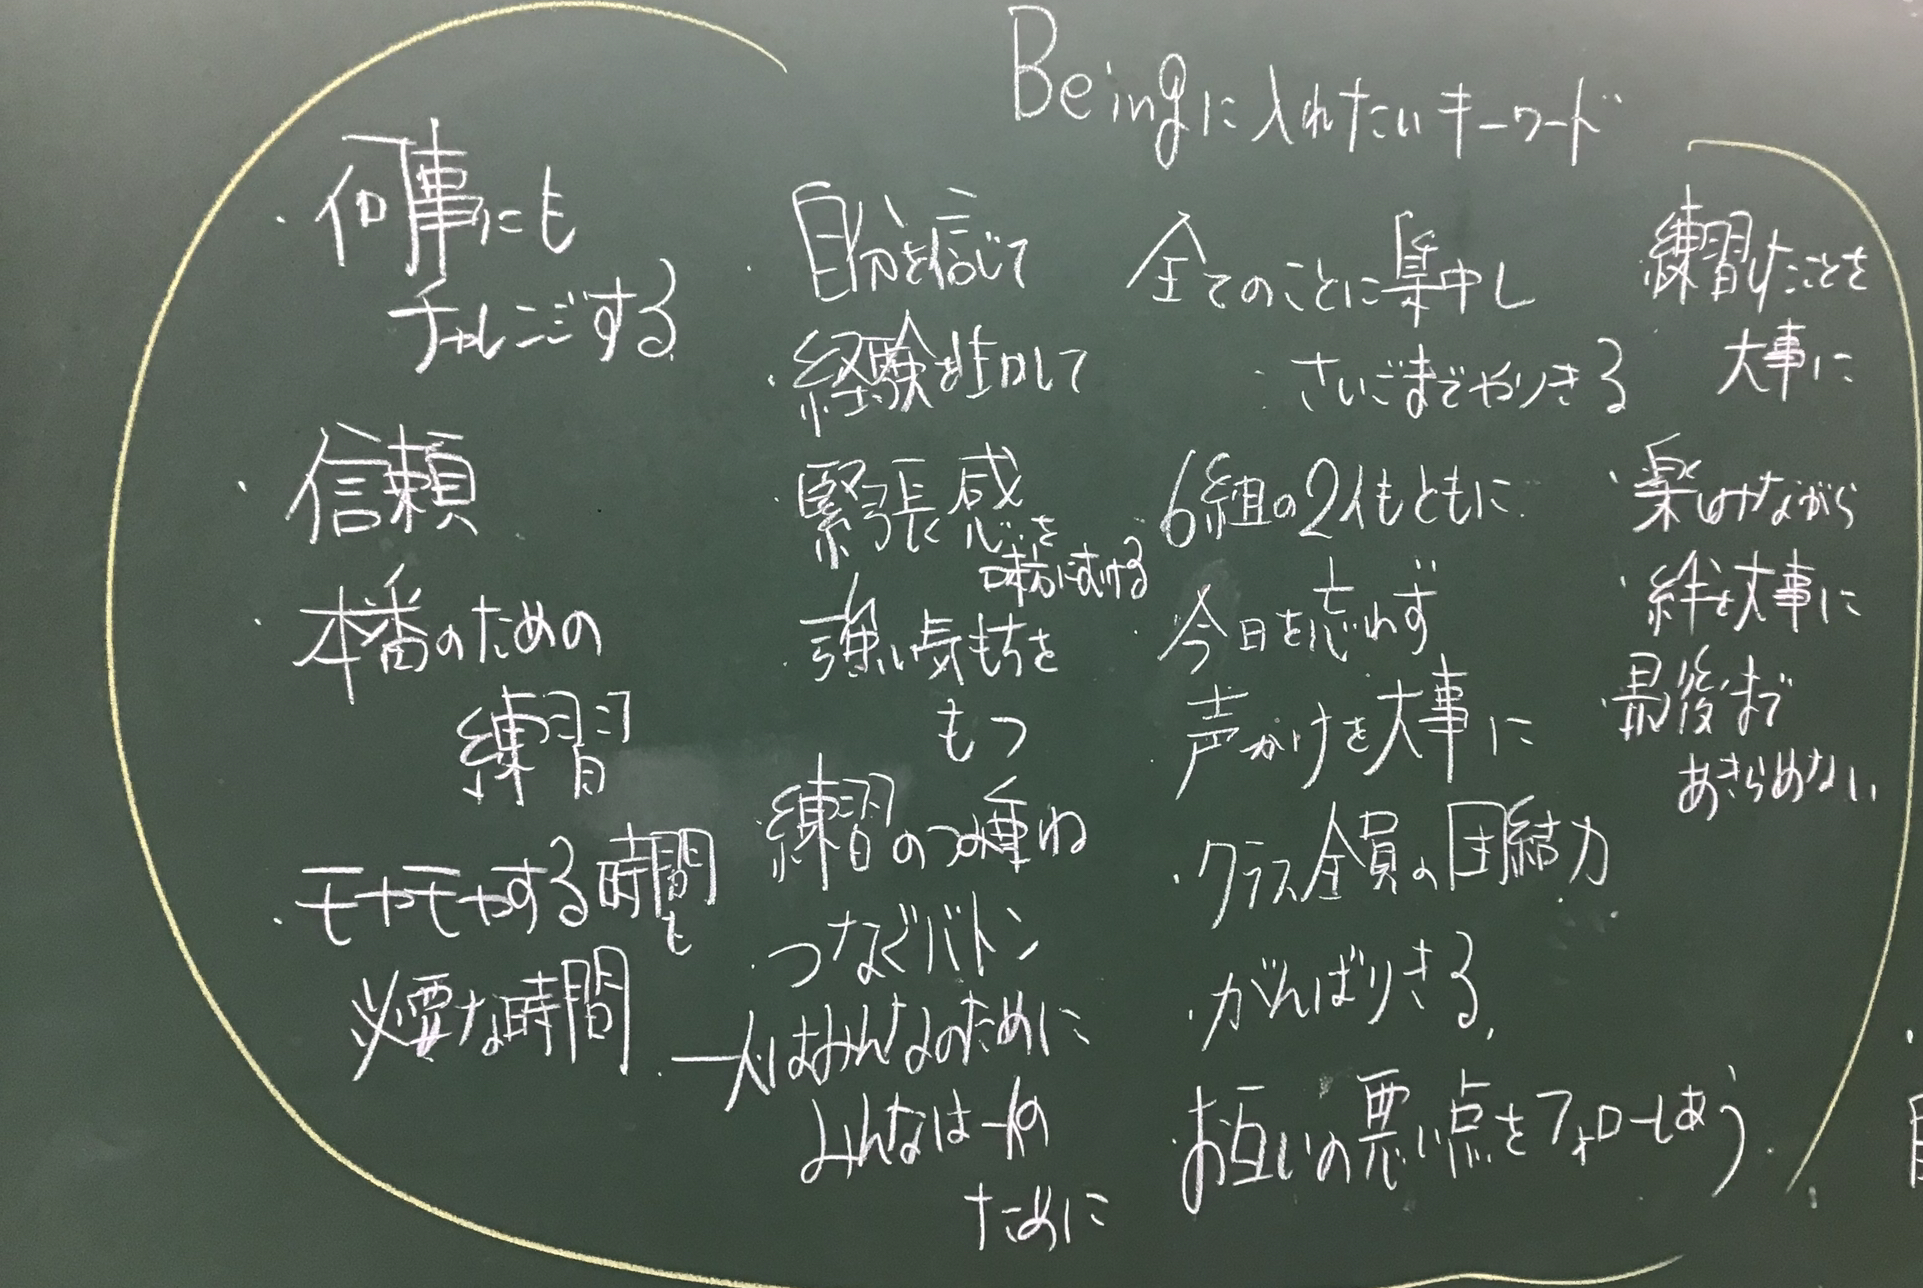 Beingに入れたいキーワード
・何事にも
チャレンジする
・信頼
・本番のための
練習
・モヤモヤする時間も
必要な時間
・自分を信じて
・経験を生かして
・緊張感を
味方につける
・強い気持ちを
もつ
・練習のつみ重ね
・つなぐバトン
・一人はみんなのために
みんなは一人の
ために
全てのことに集中し
・さいごまでやりきる
6組の2人もともに
・今日を忘れず
声かけを大事に
・クラス全員の団結力
・がんばりきる
・お互いの悪い点をフォローしあう
練習したことを
大事に
・楽しみながら
・絆を大事に
・最後まで
あきらめない